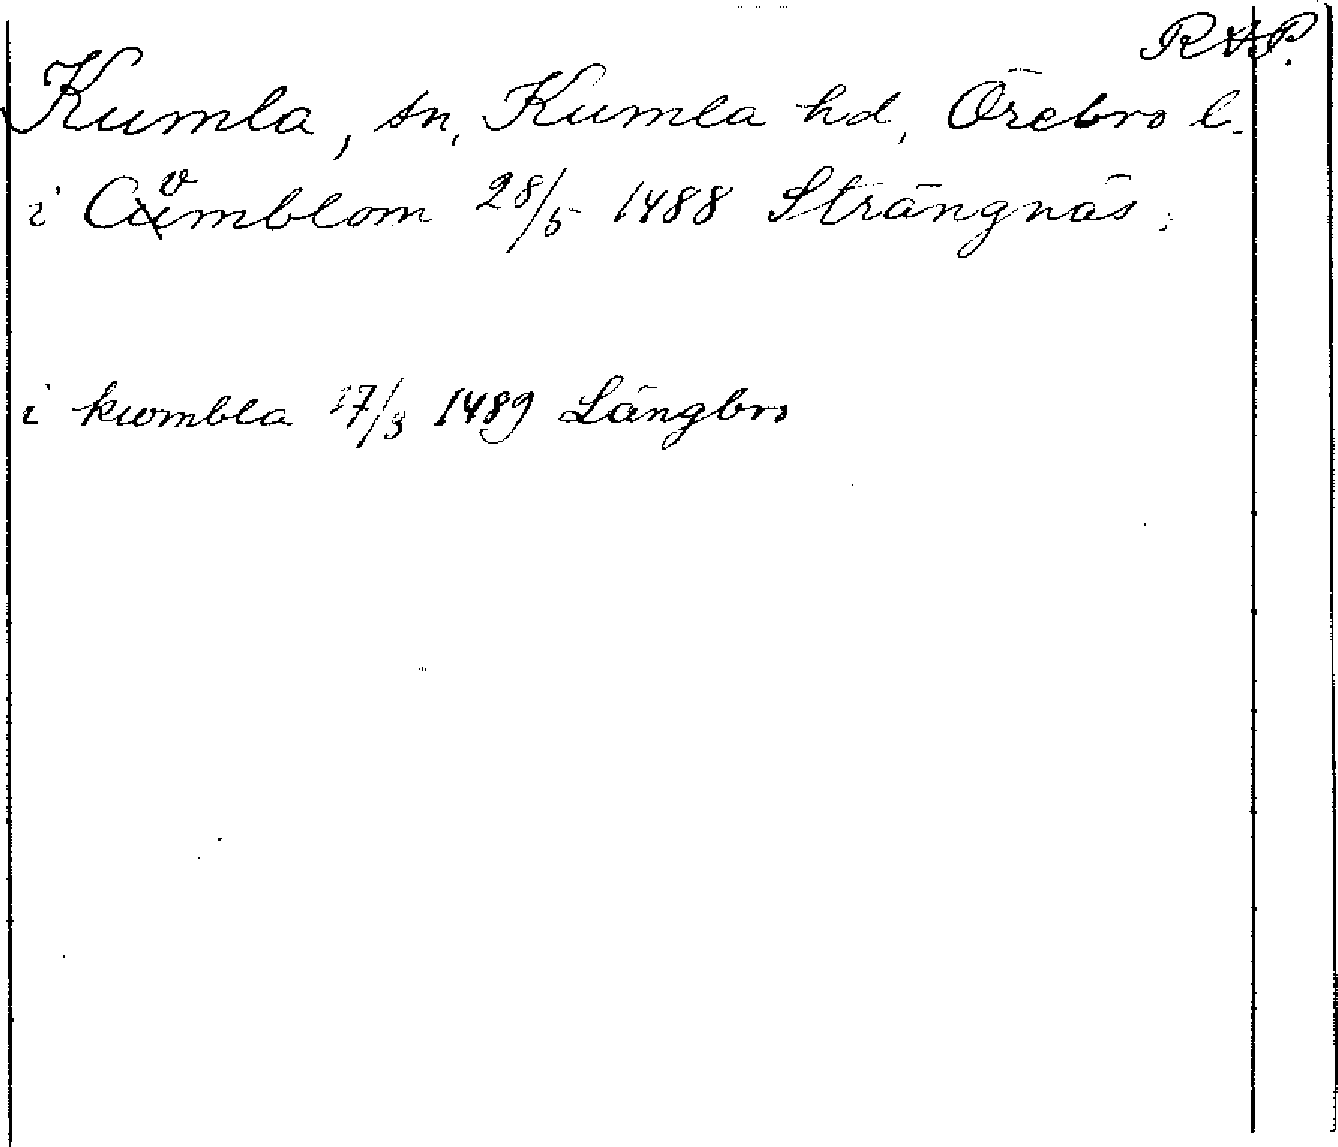 RAP.
Kumla, sn, Kumla hd, Örebro l.
i Cůmblom 28/5 1488 Strängnäs.
i kwmbla 17/3 1489 Längbro